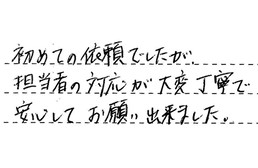 初めての依頼でしたが、
担当者の対応が大変丁寧で
安心してお願い出来ました。